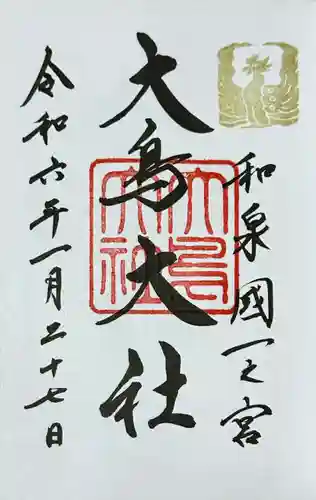 和泉國一之宮
大鳥大社
令和六年一月二十七日
大鳥大社